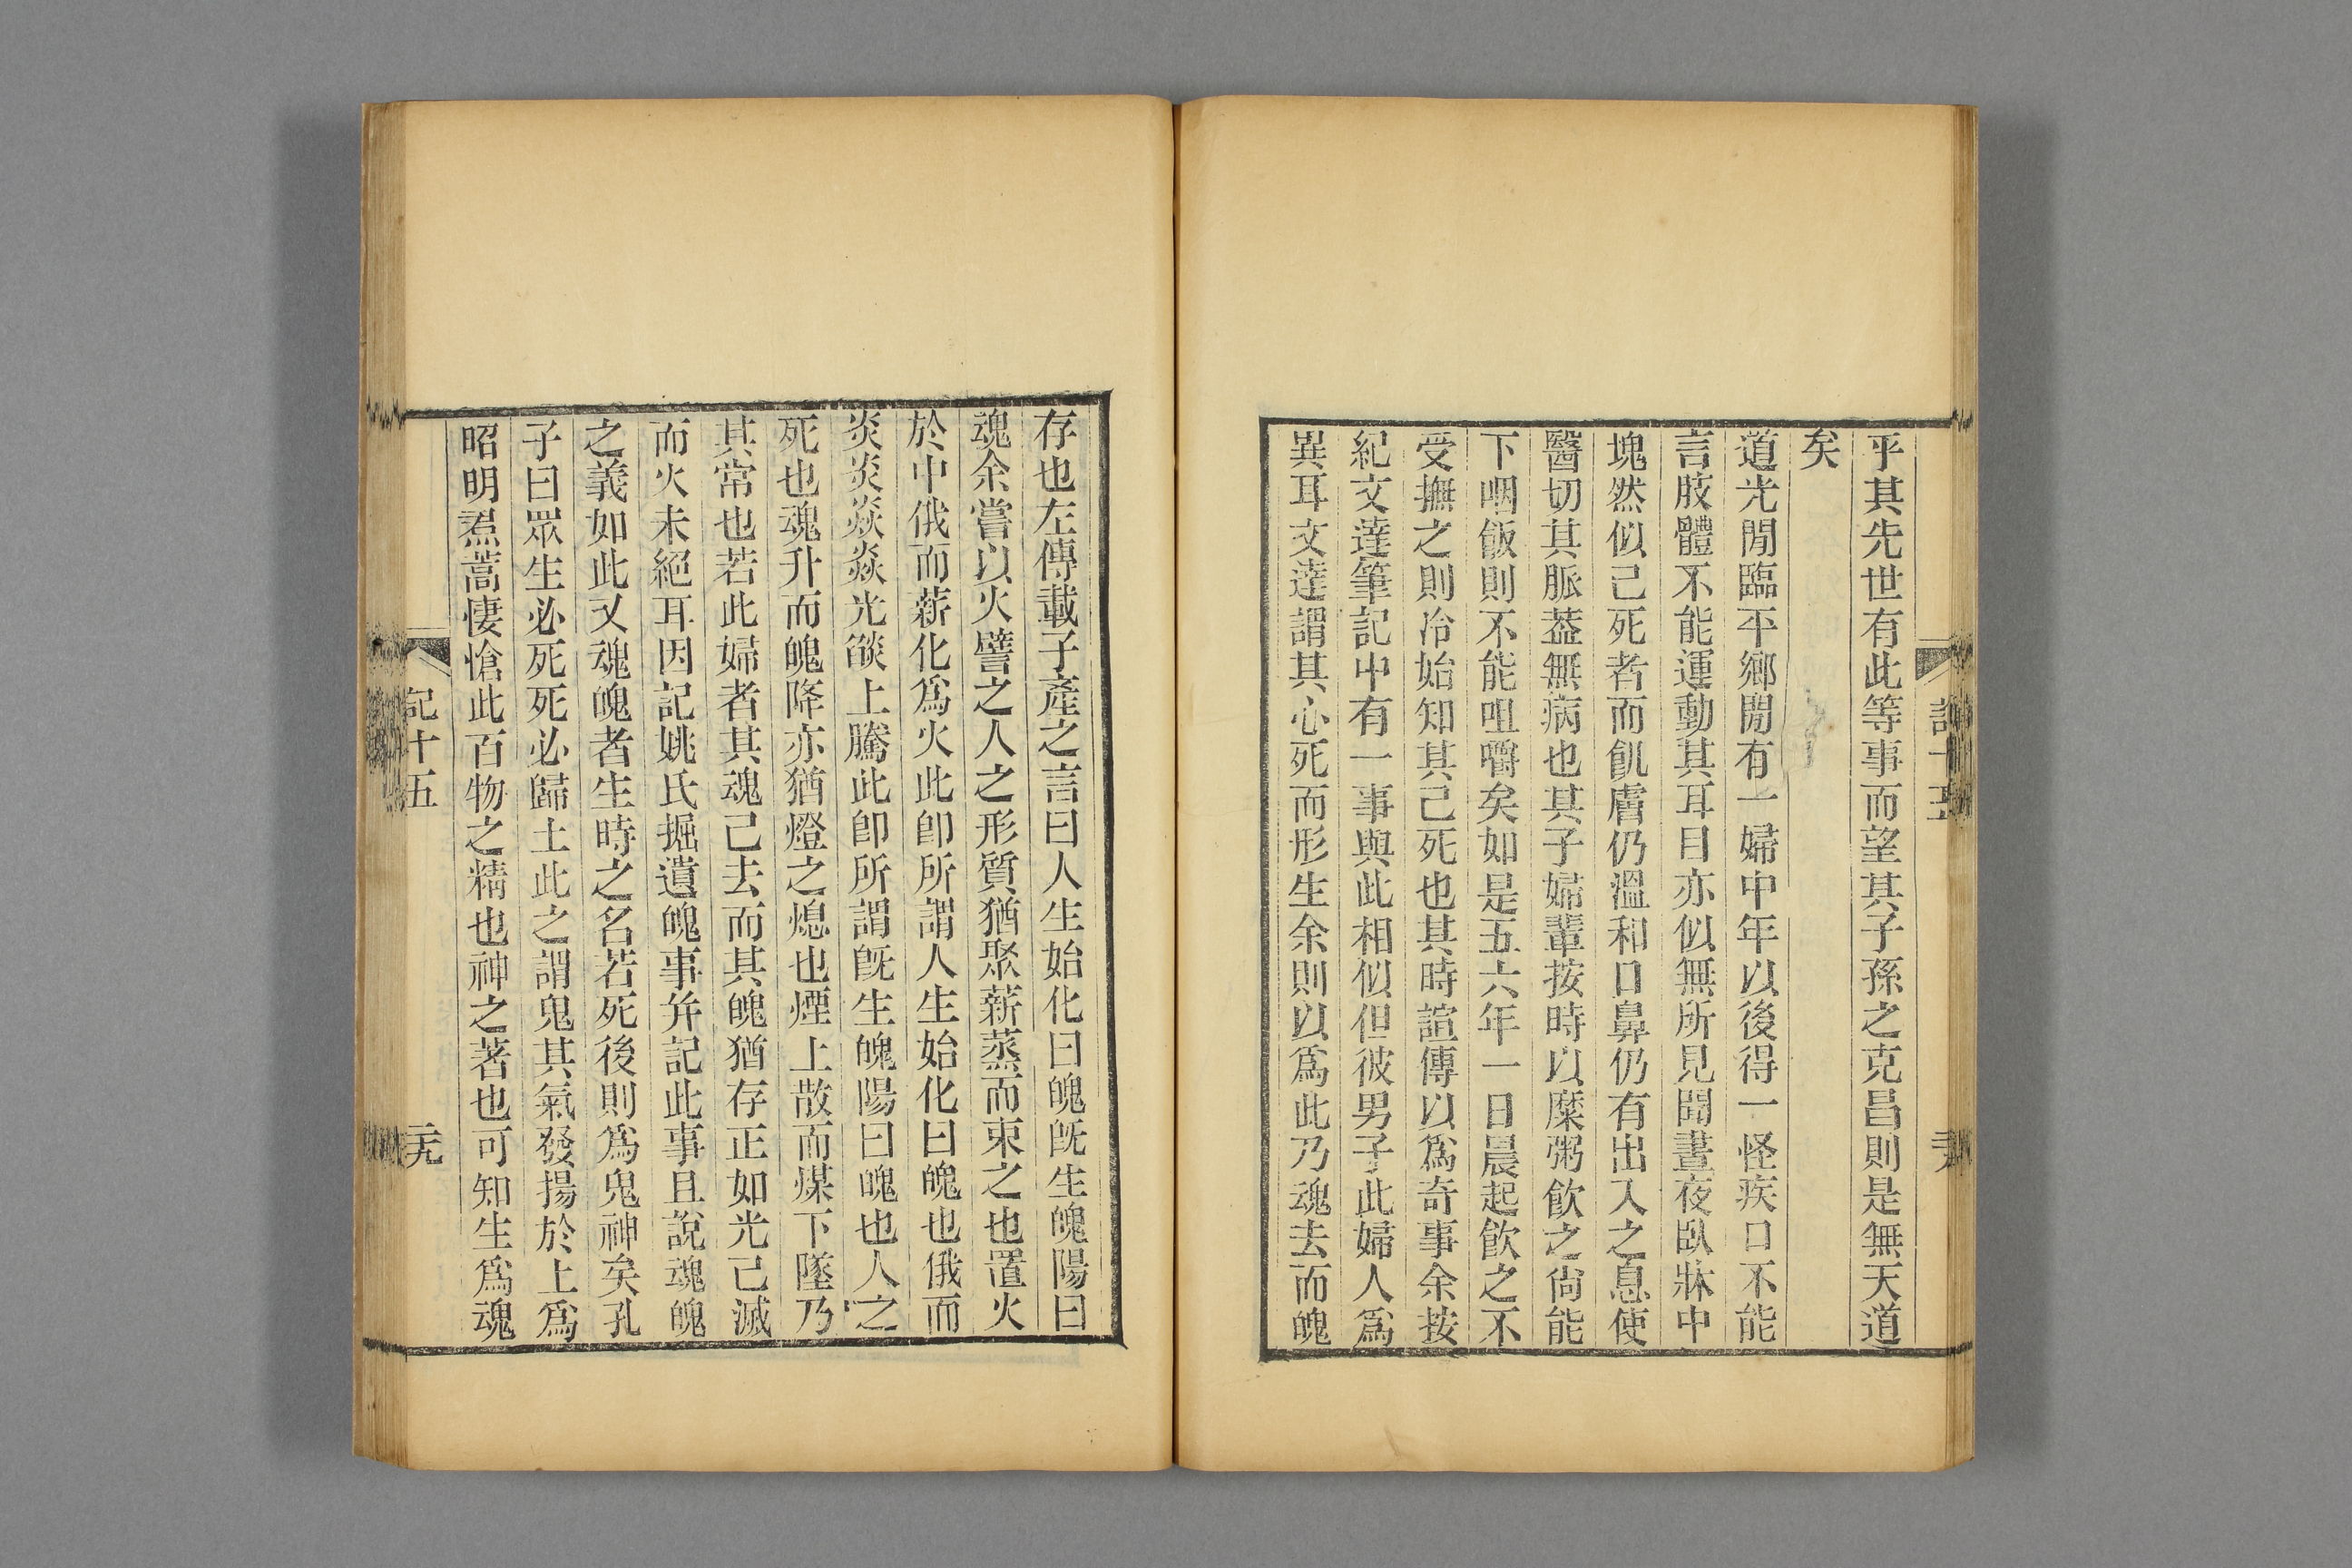 乎其先世有此等事而望其子孫之克昌則是無天道
矣
道光閒臨平鄉閒有一婦中年以後得一怪疾口不能
言肢體不能運動其耳目亦似無所見聞晝夜臥牀中
塊然似已死者而飢膚仍溫和口鼻仍有出入之息使
醫切其脈葢無病也其子婦輩按時以糜粥飮之尙能
下咽飯則不能咀嚼矣如是五六年一日晨起飮之不
受撫之則冷始知其已死也其時諠傳以爲奇事余按
紀文達筆記中有一事與此相似但彼男子此婦人爲
異耳文達謂其心死而形生余則以爲此乃魂去而魄
存也左傳載子產之言曰人生始化曰魄旣生魄陽曰
魂余嘗以火譬之人之形質猶聚薪蒸而束之也置火
於中俄而薪化爲火此卽所謂人生始化曰魄也俄而
炎炎焱焱光燄上騰此卽所謂旣生魄陽曰魂也人之
死也魂升而魄降亦猶燈之熄也煙上散而煤下墜乃
其常也若此婦者其魂已去而其魄猶存正如光已滅
而火未絕耳因記姚氏掘遺魄事幷記此事且說魂魄
之義如此又魂魄者生時之名若死後則爲鬼神矣孔
子曰眾生必死死必歸土此之謂鬼其氣發揚於上爲
昭明焄蒿悽愴此百物之精也神之著也可知生爲魂
記十五
二十九